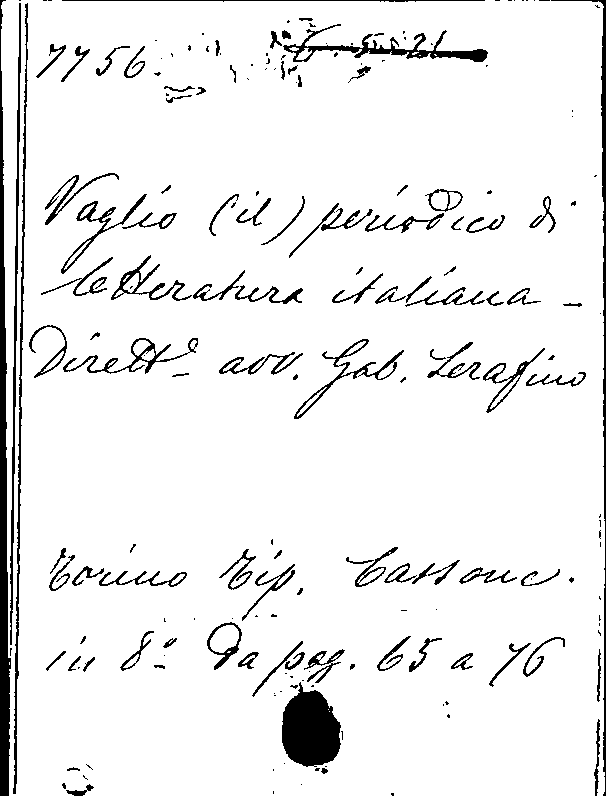 7756.
Vaglio (il) periodico di
letteratura italiana -
Dirett.e avv. Gab. Serafino
Torino Tip. Cassone.
in 8.o Da pag. 65 a 76